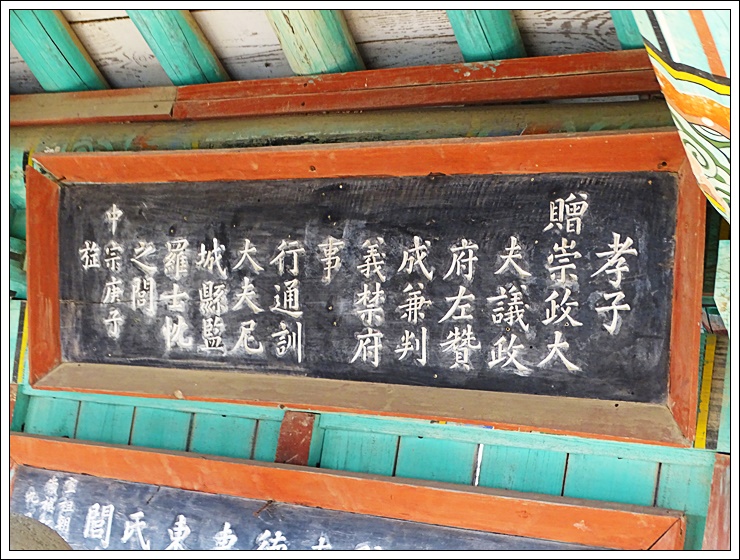 孝子
贈崇政大
夫議政
府左贊
成兼判
義禁府
事
行通訓
大夫尼
城縣監
羅士忱
之閭
中宗庚子
旌
氏閭